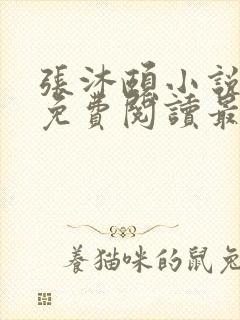 張沐頤小說
免費閱讀最
養貓咪的鼠兔